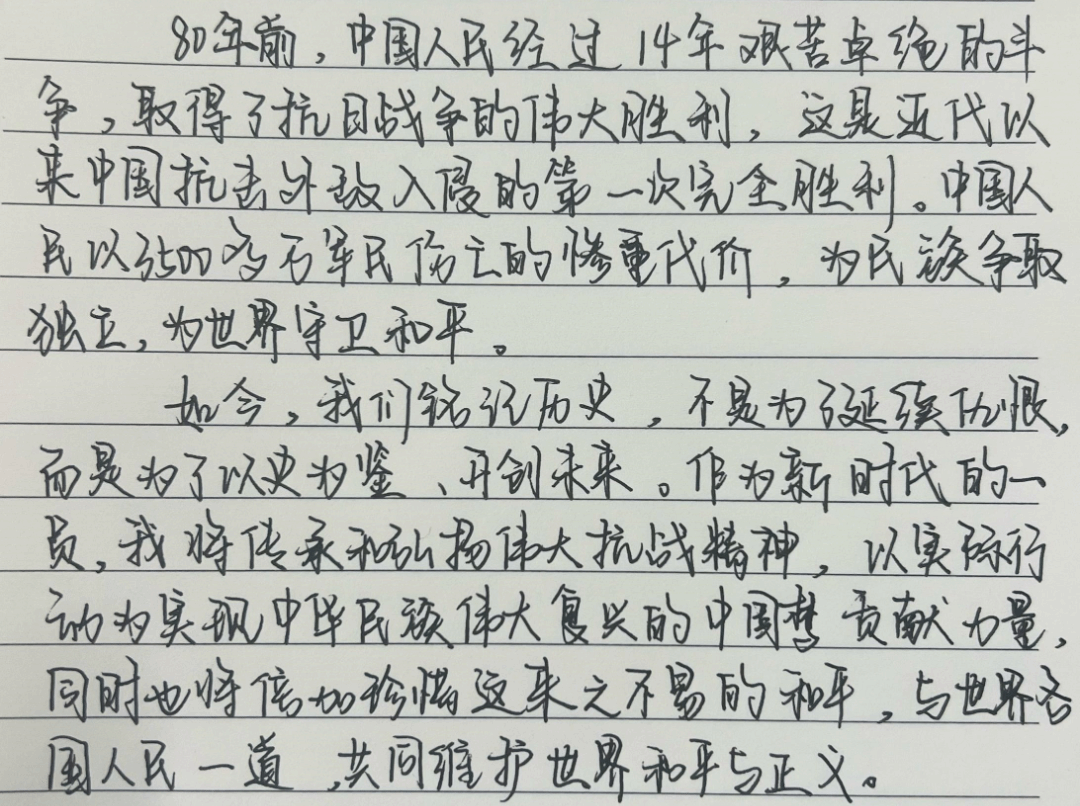 80年前，中国人民经过14年艰苦卓绝的斗
争，取得了抗日战争的伟大胜利，这是近代以
来中国抗击外敌入侵的第一次完全胜利。中国人
民以3500多万军民伤亡的惨重代价，为民族争取
独立，为世界守卫和平。
如今，我们铭记历史，不是为了延续仇恨，
而是为了以史为鉴、开创未来。作为新时代的一
员，我将传承和弘扬伟大抗战精神，以实际行
动为实现中华民族伟大复兴的中国梦贡献力量，
同时也将倍加珍惜这来之不易的和平，与世界各
国人民一道，共同维护世界和平与正义。